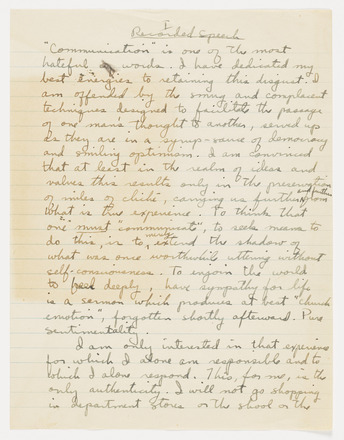 I
Recorded Speech
"Communication" is one of the most
hateful words. I have dedicated my
best energies to retaining this disgust. I
am offended by the smug and complacent
techniques designed to facilitate the passage
of one man's thought to another, served up
as they are in a syrup-sauce of democracy
and smiling optimism. I am convinced
that at least in the realm of ideas and
values this results only in the preservation
of miles of cliché, carrying us further and further from
what is true experience. To think that
one "must" communicate", to seek means to
do this, is to merely extend the shadow of
what was once worthwhile uttering without
self-consciousness. To enjoin the world
to feel deeply, have sympathy for life
is a sermon which produces at best "church
emotion", forgotten shortly afterward. Pure
sentimentality.
I am only interested in that experience
for which I alone am responsible and to
which I alone respond. This, for me, is the
only authenticity. I will not go shopping
in department stores or the school or the